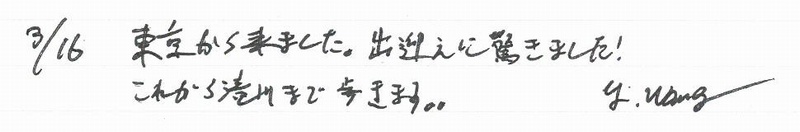 3/16 東京から来ました。出迎えに驚きました!
これから湊川まで歩きます。。 y. Wang